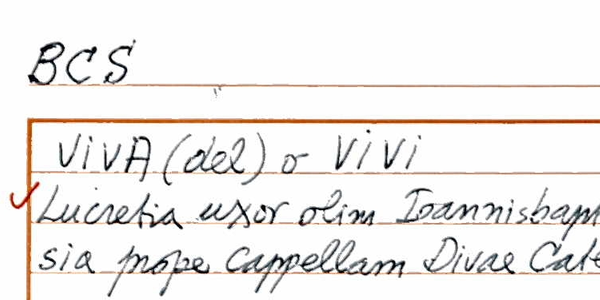 BCS
VIVA (del) o VIVI
Lucretia uxor olim Ioannisbap
sia prope Cappellam Divae Cate